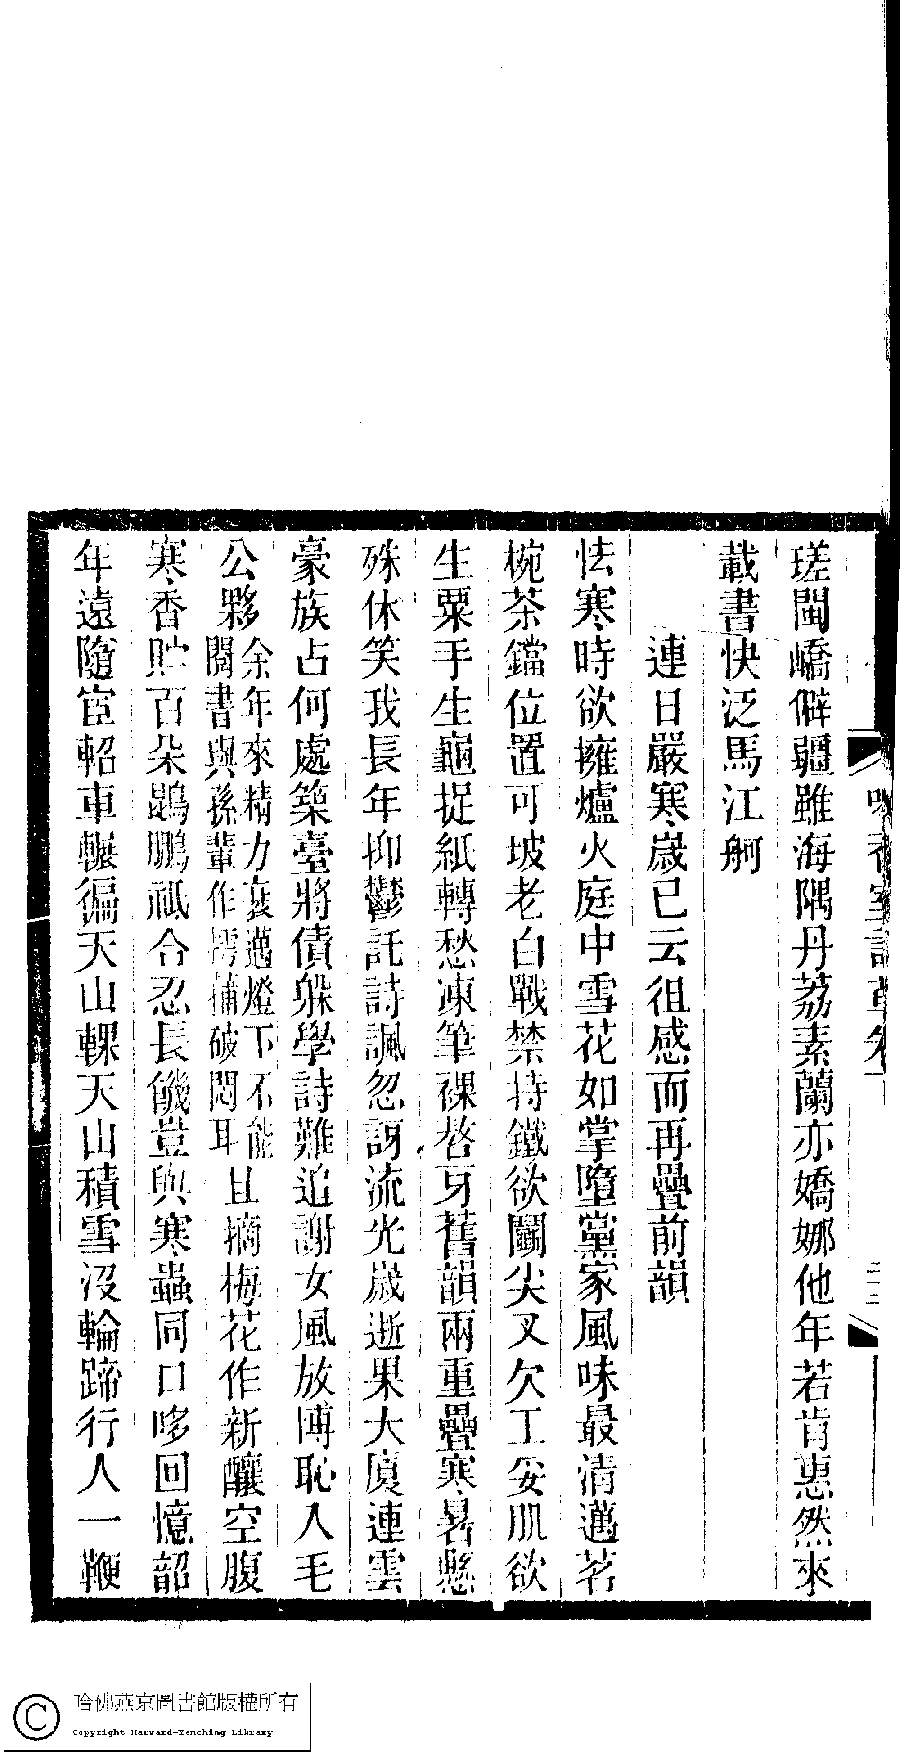 瑳閩嶠僻疆雖海隅丹荔素蘭亦嬌娜他年若肯惠然來
載書快泛馬江舸
連日嚴寒歲已云徂感而再疊前韻
怯寒時欲擁爐火庭中雪花如掌墮黨家風味最清邁茗
椀茶鐺位置可坡老白戰禁持鐵欲鬭尖叉欠工妥肌欲
生粟手生龜捉紙轉愁凍筆裸嗸牙舊韻兩重疊寒暑懸
殊休笑我長年抑鬱託詩諷忽訝流光歲逝果大廈連雲
豪族占何處築臺將債躲學詩難追謝女風放博恥入毛
公夥余年來精力衰邁燈下不能
閱書與孫輩作摴捕破悶耳且摘梅花作新釀空腹
寒香貯百朵鵾鵬祇合忍長饑豈與寒蟲同口哆回憶韶
年遠隨宦軺車輾徧天山輠天山積雪沒輪蹄行人一鞭
香室詩草卷
哈佛燕京圖書館版權所有
Copyright Harvard-Yenching Library